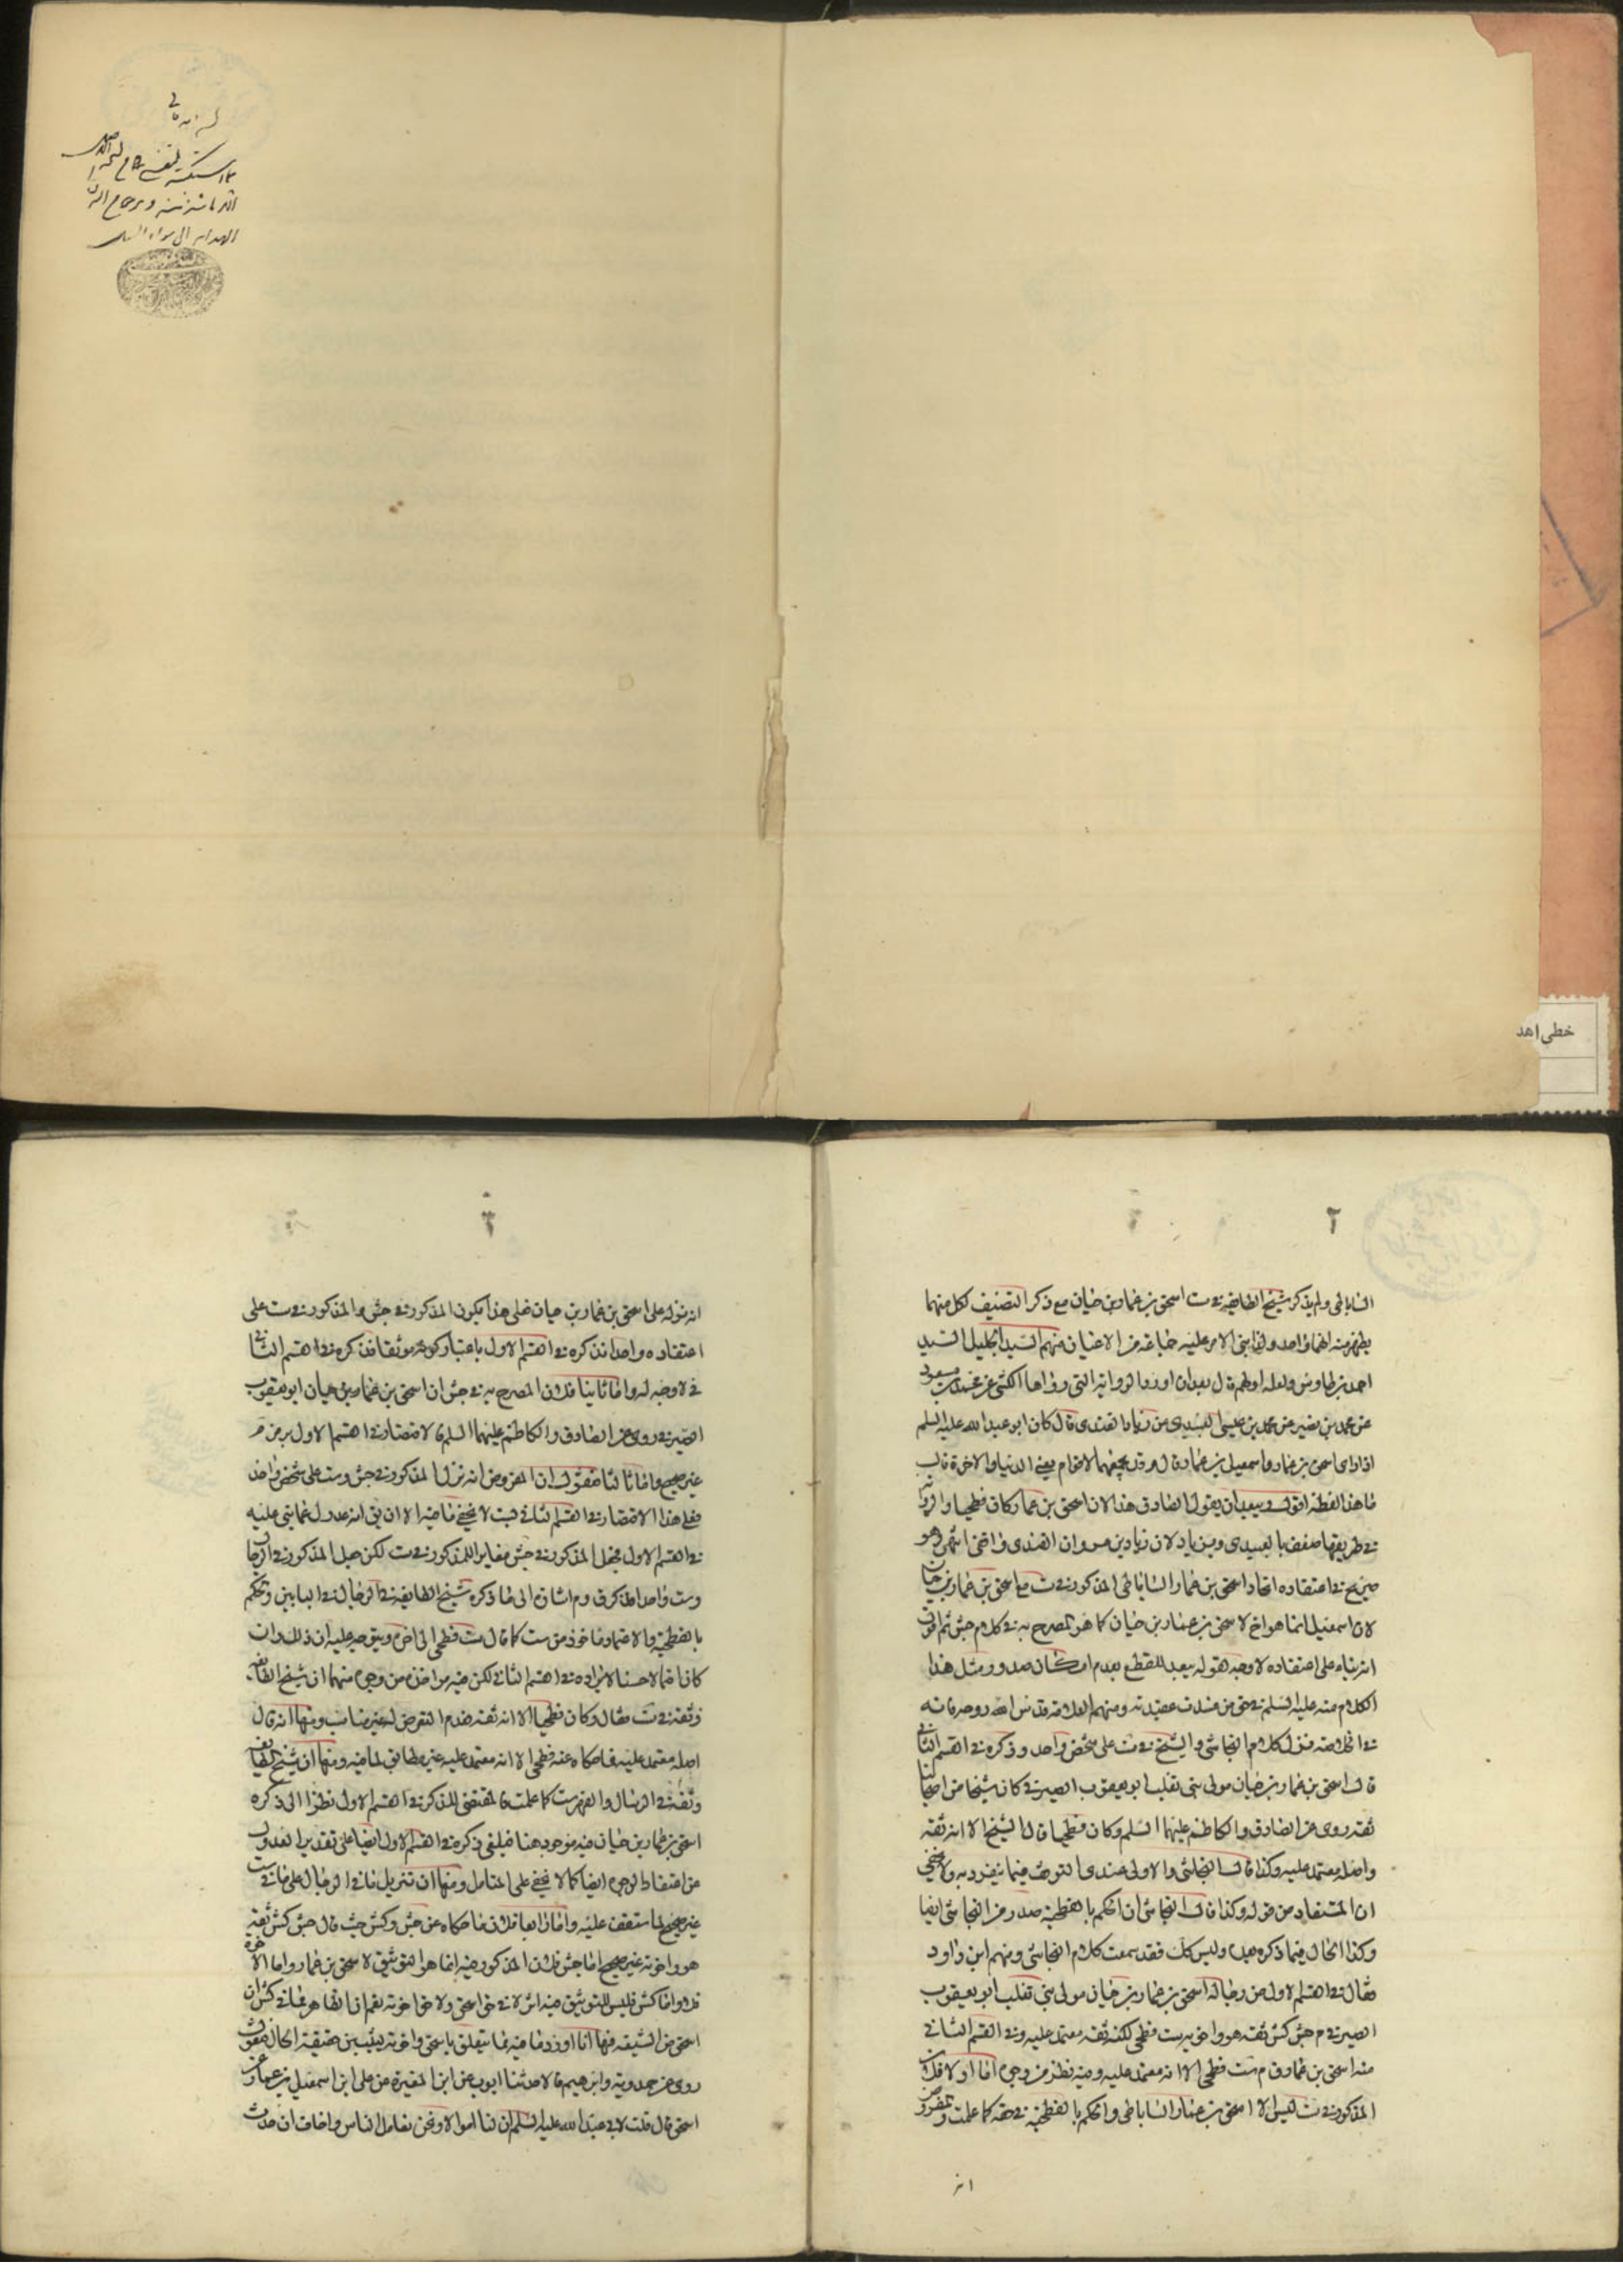 خطی اهد
٢
الساباطی ولم یذکر شیخ الطایفه فی ست اسحق بن عمار بن حیان مع ذکر التصنیف لکل منهما
یظهر منه انهما واحد ولذا بنی الامر علیه جماعة من الاعیان منهم السید الجلیل السید
احمد بن طاوس ولعله اولهم قال بعد ان اورد الروایة التی رواها الکشی عن محمد بن مسعود
عن محمد بن نصیر عن محمد بن عیسی العبیدی عن زیاد القندی قال کان ابو عبد الله علیه السلم
اذا رای اسحق بن عمار واسمعیل بن عمار قال وقد یجمعهما لاقوام یعنی الدنیا والاخرة قال
ما هذا لفظه اقول ویبعد ان یقول الصادق هذا لان اسحق بن عمار کان فطحیا والروایة
فی طریقها ضعف بالعبیدی وبزیاد لان زیاد بن مروان القندی واقفی انتهی وهو
صریح فی اعتقاده اتحاد اسحق بن عمار الساباطی المذکور فی ست مع اسحق بن عمار بن حیان
لان اسمعیل انما هو اخ لاسحق بن عمار بن حیان کما هو المصرح به فی کلام جش ثم اقول
انه بناء علی اعتقاده لا وجه لقوله یبعد للقطع بعدم امکان صدور مثل هذا
الکلام منه علیه السلم فی حق من فسدت عقیدته ومنهم العلامة قدس الله روحه فانه
فی الخلاصه نزل کلام النجاشی والشیخ فی ست علی شخص واحد وذکره فی القسم الثانی
قال اسحق بن عمار بن حیان مولی بنی تغلب ابو یعقوب الصیرفی کان شیخا من اصحابنا
ثقة روی عن الصادق والکاظم علیهما السلم وکان فطحیا قال الشیخ الا انه ثقة
واصله معتمد علیه وکذا قال النجاشی والاولی عندی التوقف فیما ینفرد به ولا یخفی
ان المستفاد من قوله وکذا قال النجاشی ان الحکم بالفطحیة صدر من النجاشی ایضا
وکذا الحال فیما ذکره بعده ولیس کک فقد سمعت کلام النجاشی ومنهم ابن داود
فقال فی القسم الاول من رجاله اسحق بن عمار بن حیان مولی بنی تغلب ابو یعقوب
الصیرفی م جش کش ثقة هو واخوته ست فطحی لکنه ثقة معتمد علیه وفی القسم الثانی
منه اسحق بن عمار ق م ست فطحی الا انه معتمد علیه وفیه نظر من وجوه اما اولا فلان
المذکور فی ست لیس الا اسحق بن عمار الساباطی والحکم بالفطحیة فی حقه کما علمت
انه
٣
انه نزله علی اسحق بن عمار بن حیان فعلی هذا یکون المذکور فی جش والمذکور فی ست علی
اعتقاده واحدا فذکره فی القسم الاول باعتبار کونه موثقا فذکره فی القسم الثانی
لا وجه له واما ثانیا فلان المصرح به فی جش ان اسحق بن عمار بن حیان ابو یعقوب
الصیرفی روی عن الصادق والکاظم علیهما السلم فالاقتصار فی القسم الاول برمز م
غیر صحیح واما ثالثا فنقول ان المفروض انه نزل المذکور فی جش وست علی شخص واحد
فعلی هذا الاقتصار فی القسم الثانی بست لا یخفی ما فیه الا ان یق انه عدول عما بنی علیه
فی القسم الاول فجعل المذکور فی جش مغایرا للمذکور فی ست لکن جعل المذکور فی الرجال
وست واحدا فذکر ق وم اشارة الی ما ذکره شیخ الطایفة فی الرجال فی البابین وحکم
بالفطحیة والاعتماد ماخوذ من ست کما قال ست فطحی الی اخره ویتوجه علیه ان ذلک وان
کان احتمالا حسنا لایراده فی القسم الثانی لکن فیه مواخذة من وجوه منها ان شیخ الطایفة
وثقه فی ست فقال وکان فطحیا الا انه ثقة فعدم التعرض له غیر مناسب ومنها انه قال
اصله معتمد علیه فما حکاه عنه فطحی الا انه معتمد علیه غیر مطابق لما فیه ومنها ان شیخ الطایفة
وثقه فی الرجال والفهرست کما علمت فالمقتضی للذکر فی القسم الاول نظرا الی ذکره
اسحق بن عمار بن حیان فیه موجود هنا فینبغی ذکره فی القسم الاول ایضا علی تقدیر العدول
عن اعتقاد الوحدة ایضا کما لا یخفی علی المتامل ومنها ان تنزیل ما فی الرجال علی ما فی ست
غیر صحیح لما ستقف علیه واما رابعا فلان ما حکاه عن جش وکش حیث قال جش کش ثقة
هو واخوته غیر صحیح اما جش فلان المذکور فیه انما هو التوثیق لاسحق بن عمار واما الاخوة
فلا واما کش فلیس للتوثیق فیه اثر لا فی حق اسحق ولا فی حق اخوته نعم الظاهر مما فی کش ان
اسحق من الشیعة فها انا اورد ما فیه مما یتعلق باسحق واخوته لیتبین حقیقة الحال فنقول
روی عن حمدویه وابرهیم قالا حدثنا ایوب عن ابن المغیرة عن علی بن اسمعیل بن عمار عن
اسحق قال قلت لابی عبد الله علیه السلم ان لنا اموالا ونحن نعامل الناس واخاف ان حدث